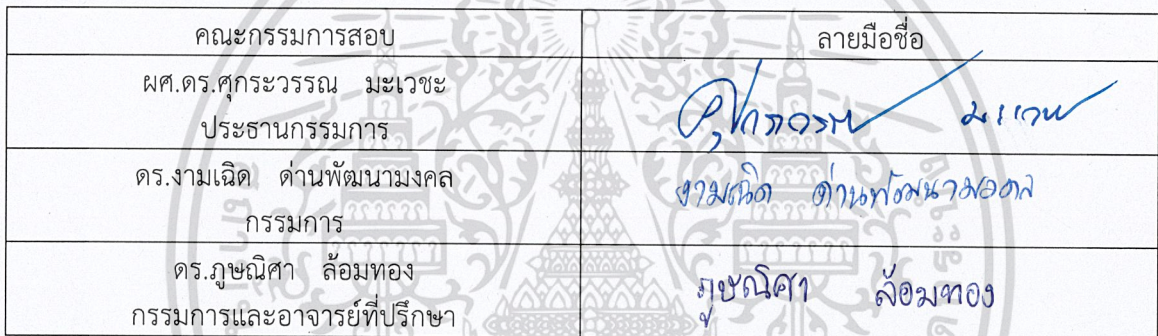 คณะกรรมการสอบ ลายมือชื่อ
ผศ.ดร.ศุกระวรรณ มะเวชะ
ประธานกรรมการ
ศุกระวรรณ มะเวชะ
ดร.งามเฉิด ด่านพัฒนามงคล
กรรมการ
งามเฉิด ด่านพัฒนามงคล
ดร.ภูษณิศา ล้อมทอง
กรรมการและอาจารย์ที่ปรึกษา
ภูษณิศา ล้อมทอง